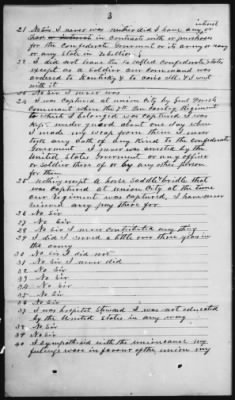 3
interest
21 No Sir I never was neither did I have any or
share or interest in contracts with or purchases
for the Confederate Government or its army or navy
or any state in rebellion
22 I did not leave the so called Confederate States
except as a soldier our command was
ordered to Kentucky & to and I went
with it
23 No Sir I never was
24 I was captured at Union City by
Command when the Tenn Cavalry Regiment
to which I belonged was captured I was
kept under guard about one day when
I made my escape from them I never
took any oath of any kind to the Confederate
Government I never was arrested by the
United States Government or any officer
or soldier there of or by any other person
for them
25 nothing except a horse Saddle & bridle that
was captured at Union City at the time
our Regiment was captured, I have never
received any pay there for
26 No Sir
27 No Sir
28 No Sir I never contributed any thing
29 I did I served a little over three years in
the army
30 No Sir I did not
31 No Sir I never did
32 No Sir
33 No Sir
34 No Sir
35 No Sir
36 No Sir
37 I was hospital Steward I was not educated
by the United States in any way
38 No Sir
39 No Sir
40 I sympathized with the union cause my
feelings were in favor of the union my